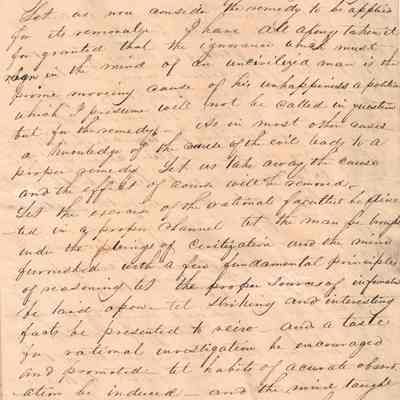 Let us now consider the remedy to be applied
for its removal. I have all along taken it
for granted that the ignorance which must
reign in the mind of an uncivilized man is the
prime moving cause of his unhappiness a position
which I presume will not be called in question
but for the remedy. As in most other cases
a knowledge of the cause of the evil leads to a
proper remedy. Let us take away the cause
and the effect of course will be removed.
Let the exercise of the rational faculties be
ted in a proper channel let the man be brought
under the of civilization and the mind
furnished with a few fundamental principles
of reasoning let the proper sources of
be laid open let striking and interesting
facts be presented to view and a taste
for rational investigation be encouraged
and promoted let habits of accurate observ
ation be induced and the mind taught